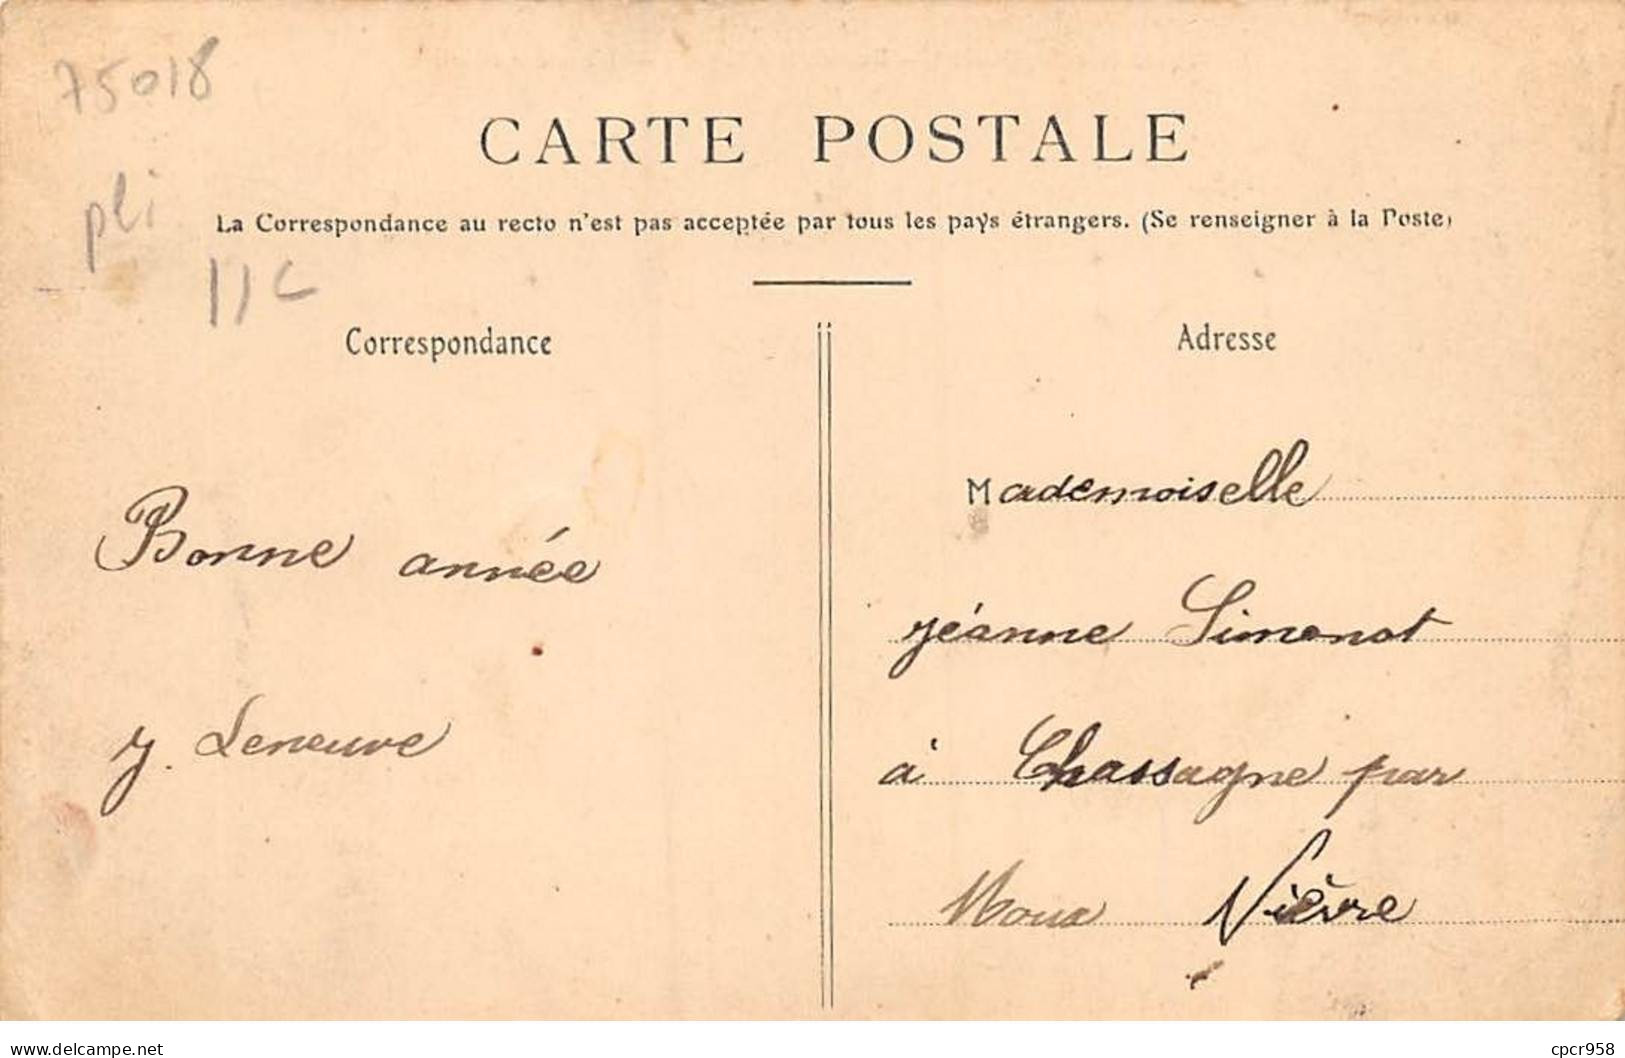 75018
CARTE POSTALE
pli
La Correspondance au recto n'est pas acceptée par tous les pays étrangers. (Se renseigner à la Poste)
Correspondance
Adresse
Mademoiselle
Bonne année
Jéanne Simonot
J. Leneuve
à Chassagne par
Moux Nièvre
delcampe.net
cpcr958